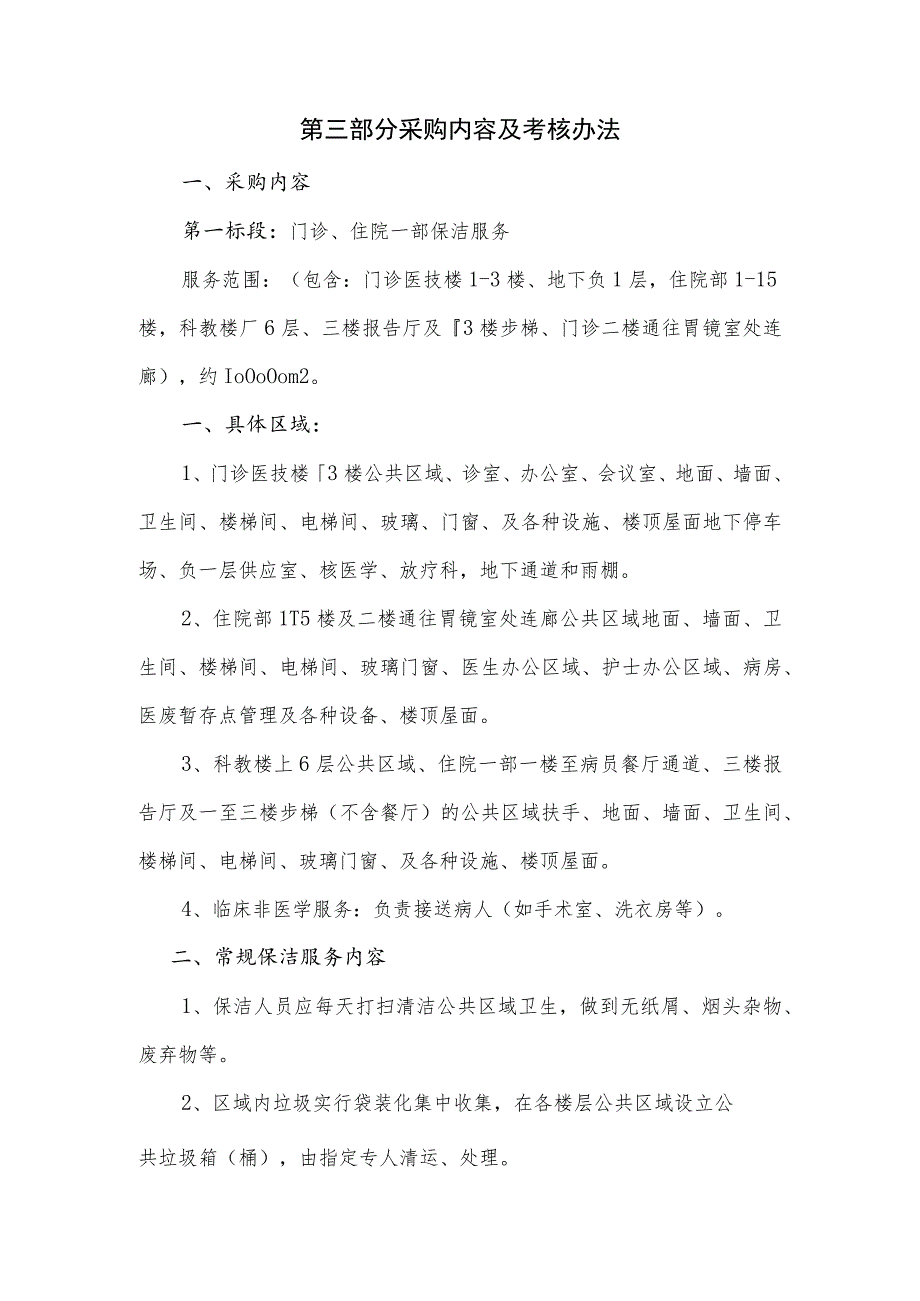 第三部分采购内容及考核办法
一、采购内容
第一标段：门诊、住院一部保洁服务
服务范围：（包含：门诊医技楼1-3楼、地下负1层，住院部1-15
楼，科教楼厂6层、三楼报告厅及『3楼步梯、门诊二楼通往胃镜室处连
廊），约IoOoOom2。
一、具体区域：
1、门诊医技楼「3楼公共区域、诊室、办公室、会议室、地面、墙面、
卫生间、楼梯间、电梯间、玻璃、门窗、及各种设施、楼顶屋面地下停车
场、负一层供应室、核医学、放疗科，地下通道和雨棚。
2、住院部1T5楼及二楼通往胃镜室处连廊公共区域地面、墙面、卫
生间、楼梯间、电梯间、玻璃门窗、医生办公区域、护士办公区域、病房、
医废暂存点管理及各种设备、楼顶屋面。
3、科教楼上6层公共区域、住院一部一楼至病员餐厅通道、三楼报
告厅及一至三楼步梯（不含餐厅）的公共区域扶手、地面、墙面、卫生间、
楼梯间、电梯间、玻璃门窗、及各种设施、楼顶屋面。
4、临床非医学服务：负责接送病人（如手术室、洗衣房等）。
二、常规保洁服务内容
1、保洁人员应每天打扫清洁公共区域卫生，做到无纸屑、烟头杂物、
废弃物等。
2、区域内垃圾实行袋装化集中收集，在各楼层公共区域设立公
共垃圾箱（桶），由指定专人清运、处理。